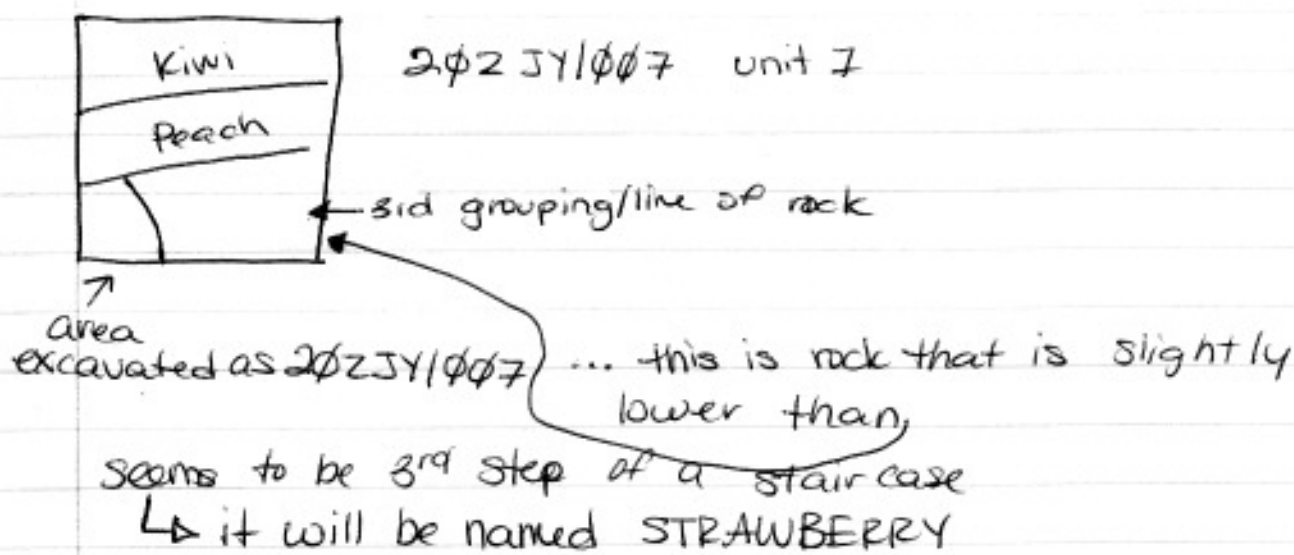 Kiwi 2φ2 JY1φφ7 unit 7
Peach
3rd grouping/line of rock
area
excavated as 2φ2JY1φφ7 ... this is rock that is slightly
lower than,
seems to be 3rd step of a staircase
↳ it will be named STRAWBERRY